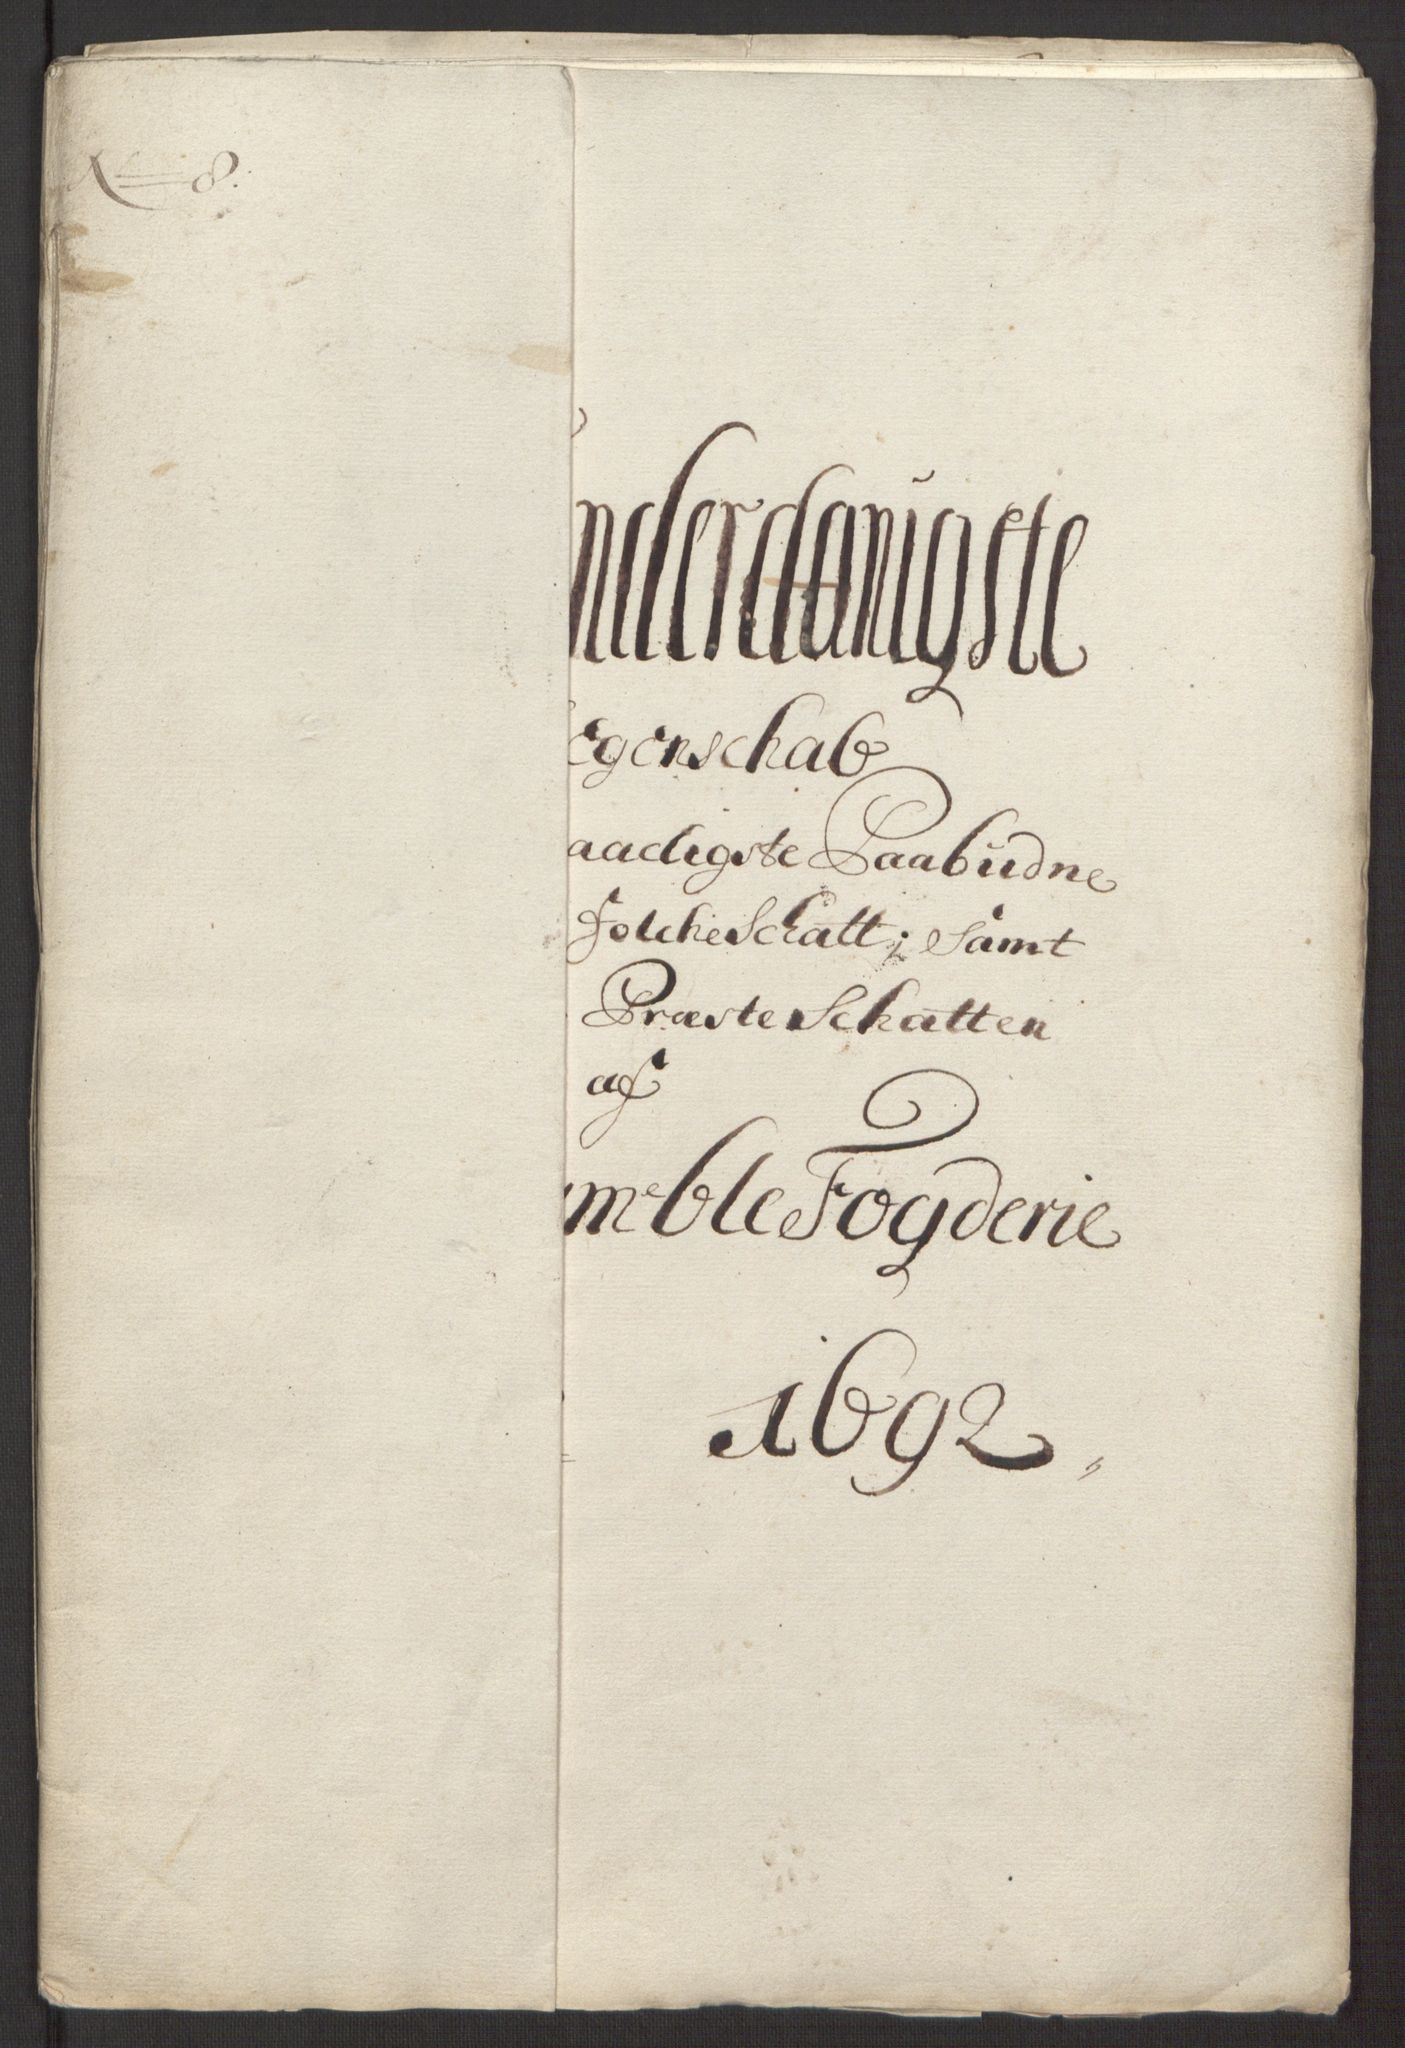 N 8.
nderdanigste
egenschab
aadigste Paabüdne
FolcheSchatt; Samt
PræsteSchatten
af
mbleFogderie
1692